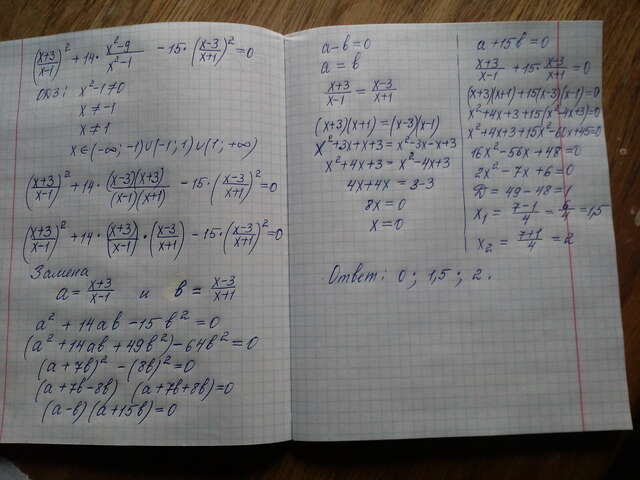 ((x+3)/(x-1))² + 14 · (x²-9)/(x²-1) - 15 · ((x-3)/(x+1))² = 0
ОДЗ: x²-1≠0
x ≠ -1
x ≠ 1
x ∈ (-∞; -1) ∪ (-1; 1) ∪ (1; +∞)
((x+3)/(x-1))² + 14 · ((x-3)(x+3))/((x-1)(x+1)) - 15 · ((x-3)/(x+1))² = 0
((x+3)/(x-1))² + 14 · ((x+3)/(x-1)) · ((x-3)/(x+1)) - 15 · ((x-3)/(x+1))² = 0
Замена
a = (x+3)/(x-1) и b = (x-3)/(x+1)
a² + 14ab - 15b² = 0
(a² + 14ab + 49b²) - 64b² = 0
(a + 7b)² - (8b)² = 0
(a + 7b - 8b) (a + 7b + 8b) = 0
(a-b)(a+15b) = 0
a-b=0
a = b
(x+3)/(x-1) = (x-3)/(x+1)
(x+3)(x+1) = (x-3)(x-1)
x²+3x+x+3 = x²-3x-x+3
x²+4x+3 = x²-4x+3
4x+4x = 3-3
8x = 0
x = 0
a+15b=0
(x+3)/(x-1) + 15 · (x-3)/(x+1) = 0
(x+3)(x+1)+15(x-3)(x-1)=0
x²+4x+3+15(x²-4x+3)=0
x²+4x+3+15x²-60x+45=0
16x²-56x+48=0
2x²-7x+6=0
D = 49-48=1
x₁ = (7-1)/4 = 6/4 = 1,5
x₂ = (7+1)/4 = 2
Ответ: 0; 1,5; 2.